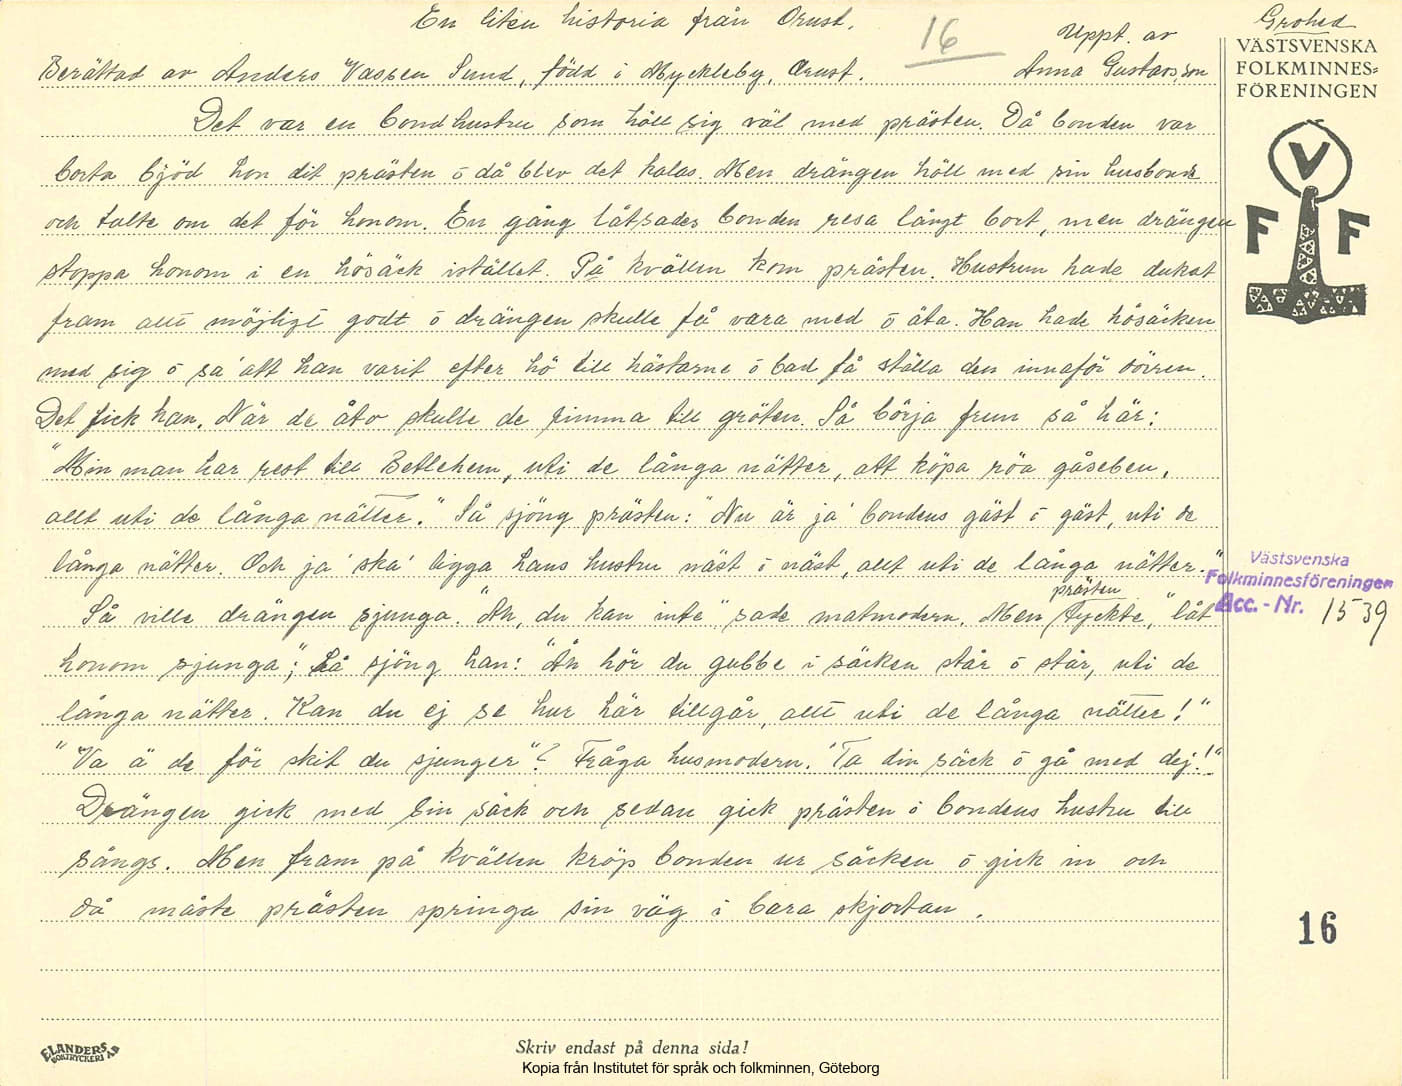 En liten historia från Orust.
16
Uppt. av
Grohed
Berättad av Anders Vassen Sund, född i Myckleby, Orust.
Anna Gustavsson
VÄSTSVENSKA
FOLKMINNES=
FÖRENINGEN
Det var en bondhustru som höll sig väl med prästen. Då bonden var
borta bjöd hon dit prästen ō då blev det kalas. Men drängen höll med sin husbonde
och talte om det för honom. En gång låtsades bonden resa långt bort, men drängen
stoppa honom i en hösäck istället. På kvällen kom prästen. Hustrun hade dukat
fram allt möjligt godt ō drängen skulle få vara med ō äta. Han hade hösäcken
med sig ō sa' att han varit efter hö till hästarne ō bad få ställa den innaför dörren.
Det fick han. När de åto skulle de rimma till gröten. Så börja frun så här:
"Min man har rest till Betlehem, uti de långa nätter, att köpa röa gåseben,
allt uti de långa nätter." Så sjöng prästen: "Nu är ja' bondens gäst ō gäst, uti de
långa nätter. Och ja' ska' ligga hans hustru näst ō näst, allt uti de långa nätter."
Så ville drängen sjunga. "Äh, du kan inte" sade matmodern. Men prästen tyckte, "låt
honom sjunga"; Så sjöng han: "Än hör du gubbe i säcken står ō står, uti de
långa nätter. Kan du ej se hur här tillgår, allt uti de långa nätter!"
"Va ä de för skit du sjunger"? Fråga husmodern. "Ta din säck ō gå med dej!"
Drängen gick med sin säck och sedan gick prästen ō bondens hustru till
sängs. Men fram på kvällen kröp bonden ur säcken ō gick in och
då måste prästen springa sin väg i bara skjortan.
V
F F
Västsvenska
Folkminnesföreningen
Acc. - Nr. 1539
16
ELANDERS
BOKTRYCKERI AB
Skriv endast på denna sida!
Kopia från Institutet för språk och folkminnen, Göteborg